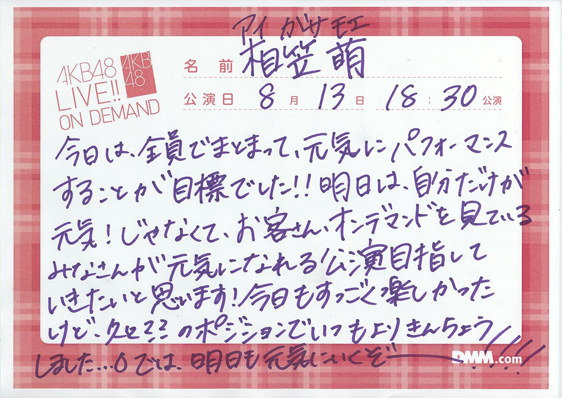 アイ ガサ モエ
AKB48
LIVE!!
ON DEMAND
AKB
48
名前 相笠萌
公演日 8月13日 18:30公演
今日は、全員でまとまって、元気にパフォーマンス
することが目標でした!!明日は、自分だけが
元気!じゃなくて、お客さん、オンデマンドを見ている
みなさんが元気になれる公演目指して
いきたいと思います!今日もすっごく楽しかった
けど、のポジションでいつもよりきんちょう
しました...では、明日も元気にいくぞー!!!!
DMM.com